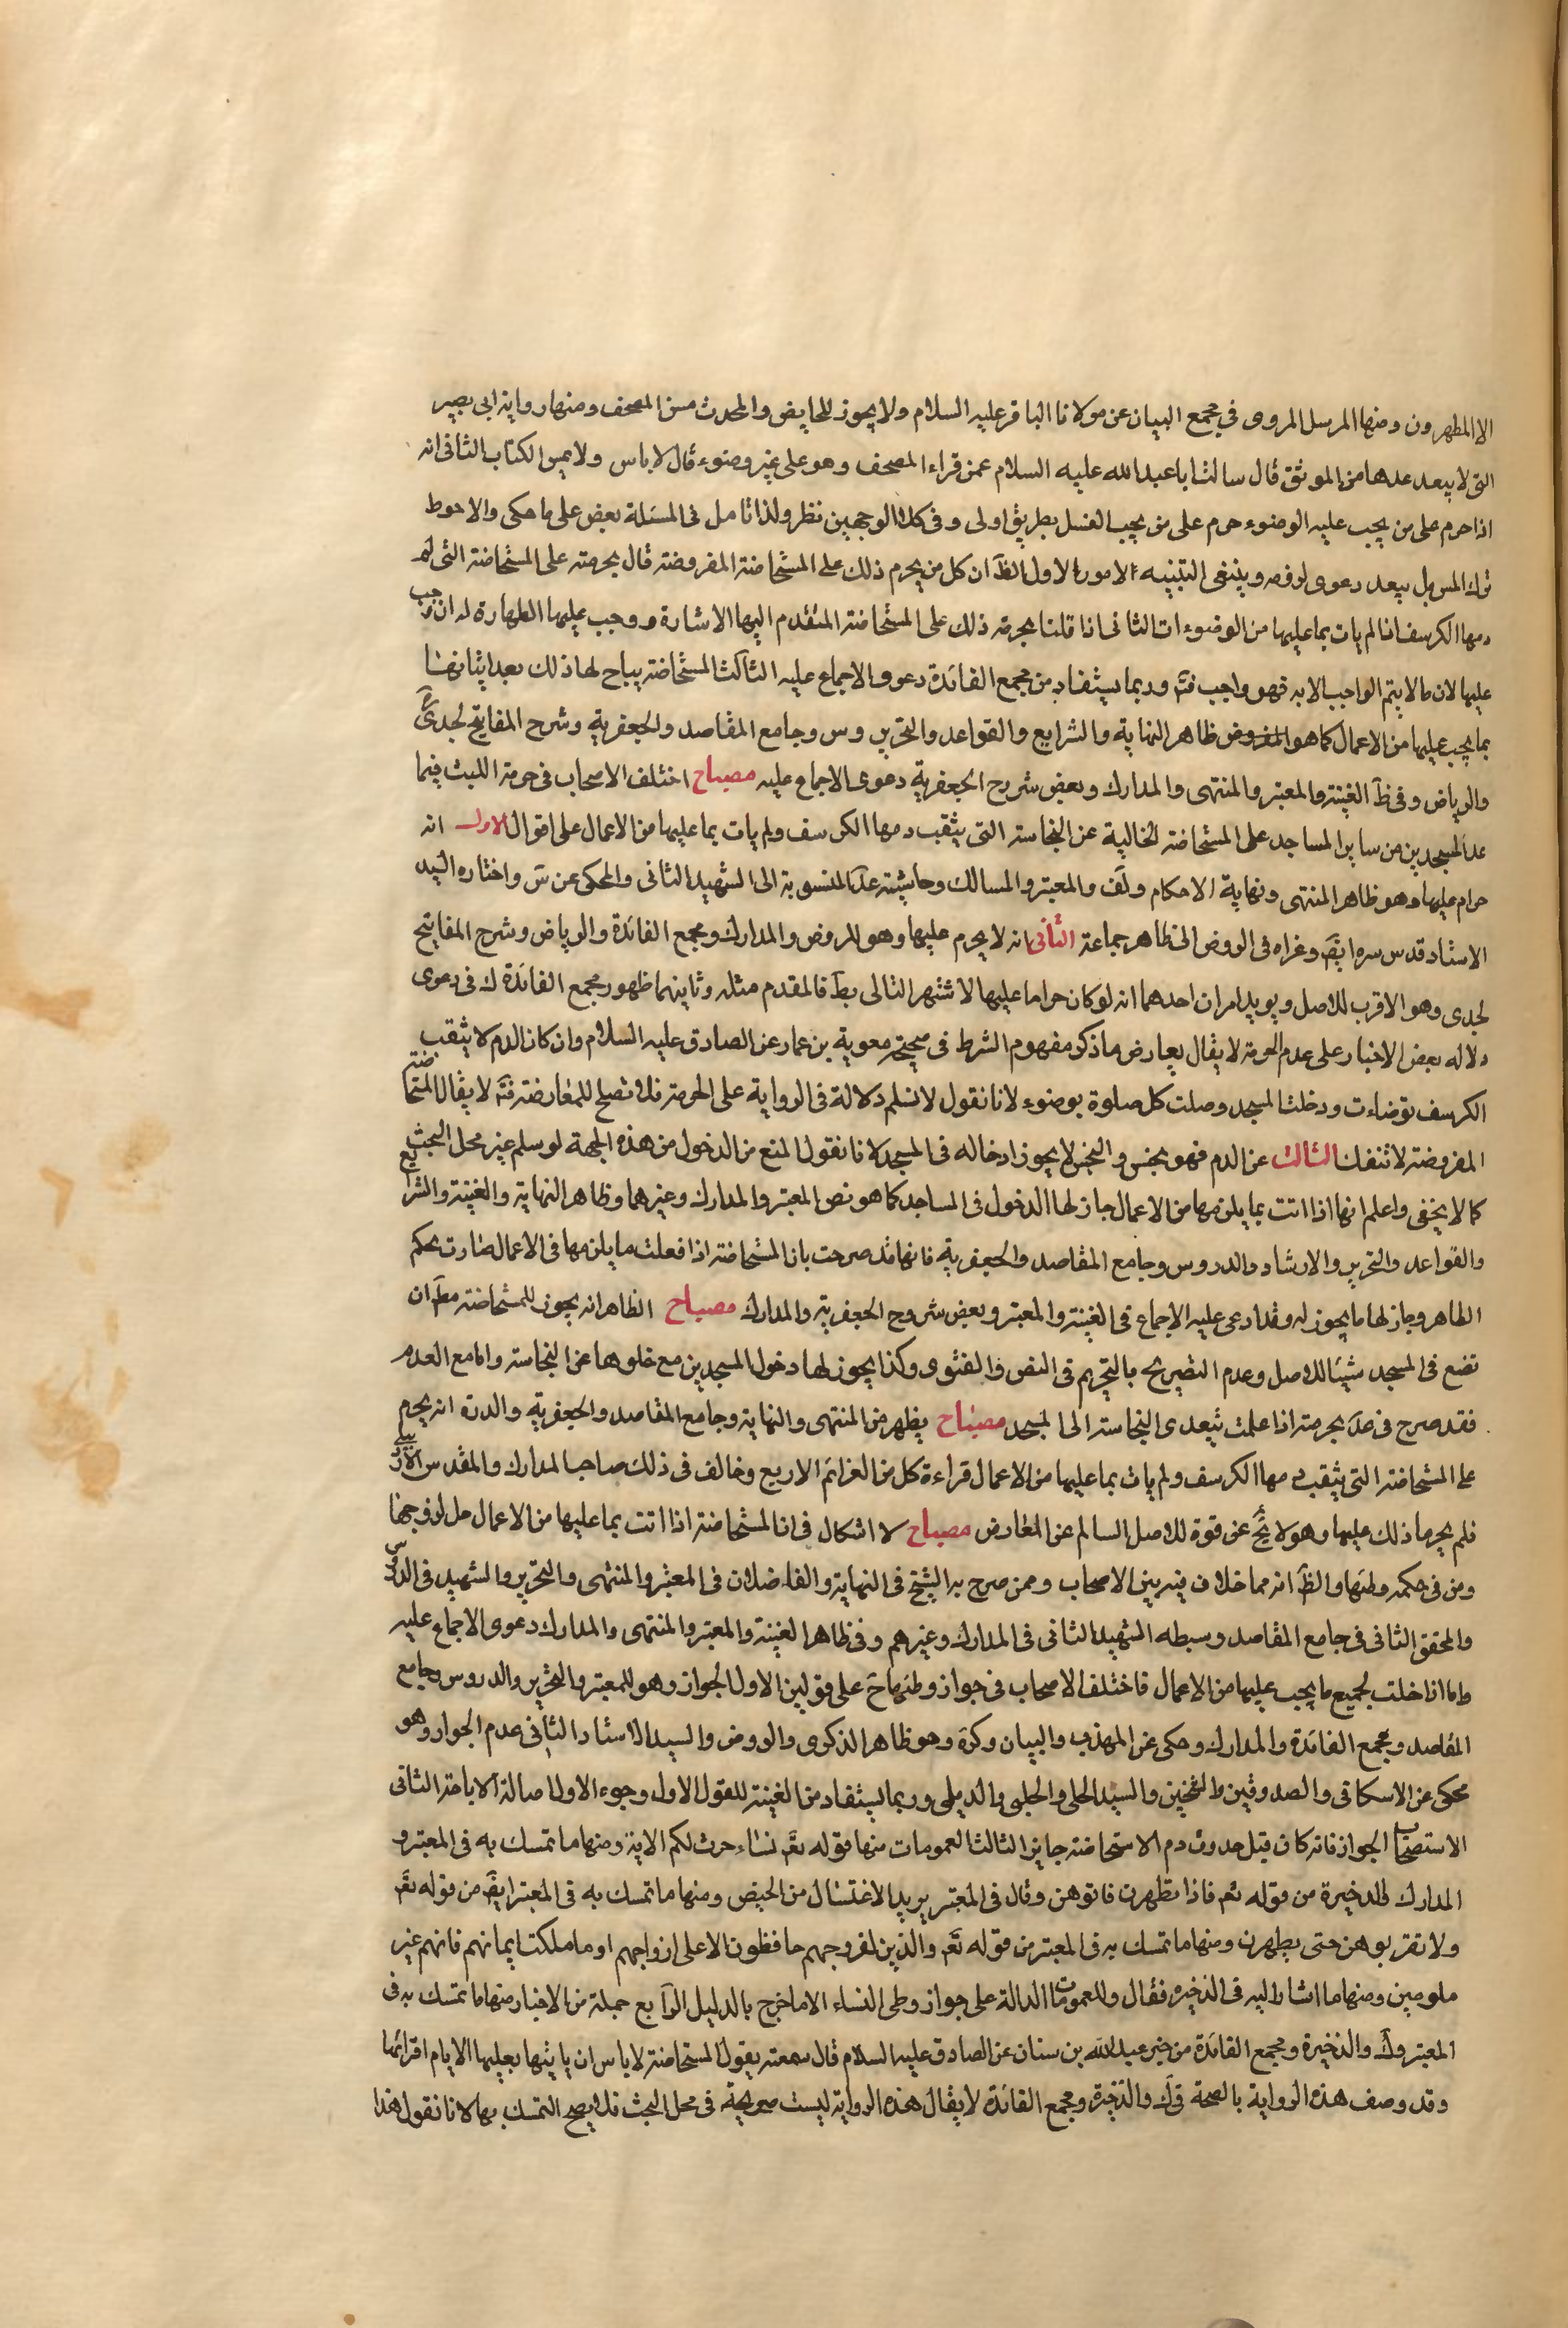 الا المطهرون ومنها المرسل المروى فى مجمع البيان عن مولانا الباقر عليه السلام ولا يجوز للحايض والمحدث مس المصحف ومنها رواية ابى بصير
التى لا يبعد عدها من الموثق قال سالت ابا عبد الله عليه السلام عمن قراء المصحف وهو على غير وضوء قال لا باس ولا يمس الكتاب الثانى انه
اذا حرم على من يجب عليه الوضوء حرم على من يجب الغسل بطريق اولى وفى كلا الوجهين نظر ولذا تامل فى المسئلة بعض على ما حكى والاحوط
ترك المس بل يبعد دعوى لزومه وينبغى التنبيه الامور الاول الظَ ان كل من يحرم ذلك على المستحاضة المفروضة قال بحرمته على المستحاضة التى لم
دمها الكرسف اذا لم يات بما عليها من الوضوءات الثانى اذا قلنا بحرمة ذلك على المستحاضة المتقدم اليها الاشارة ووجب عليها الطهارة له ان وجب
عليها لان ما لا يتم الواجب الا به فهو واجب فتَم وربما يستفاد من مجمع الفائدة دعوى الاجماع عليه الثالث المستحاضة يباح لها ذلك بعد اتيانها
بما يجب عليها من الاعمال كما هو المفروض ظاهر النهاية والشرايع والقواعد والتحرير وس وجامع المقاصد والجعفرية وشرح المفاتيح لجدى
والرياض وفى ظَ الغنية والمعتبر والمنتهى والمدارك وبعض شروح الجعفرية دعوى الاجماع عليه مصباح اختلف الاصحاب فى حرمة اللبث فيما
عدا المسجدين من ساير المساجد على المستحاضة الخالية عن النجاسة التى يثقب دمها الكرسف ولم يات بما عليها من الاعمال على اقوال الاول انه
حرام عليها وهو ظاهر المنتهى ونهاية الاحكام ولَف والمعتبر والمسالك وحاشية عَد المنسوبة الى الشهيد الثانى والمحكى عن سَ واختاره السيد
الاستاد قدس سره ايضَ وعزاه فى الروض الى ظاهر جماعة الثانى انه لا يحرم عليها وهو للروض والمدارك ومجمع الفائدة والرياض وشرح المفاتيح
لجدى وهو الاقرب للاصل ويويد امران احدهما انه لو كان حراما عليها لاشتهر التالى بطَ فالمقدم مثله وثانيهما ظهور مجمع الفائدة ك فى دعوى
دلاله بعض الاخبار على عدم الحرمة لا يقال يعارض ما ذكر مفهوم الشرط فى صحيح معوية بن عمار عن الصادق عليه السلام وان كان الدم لا يثقب
الكرسف توضات ودخلت المسجد وصلت كل صلوة بوضوء لانا نقول لا نسلم دلالة فى الرواية على الحرمة فلا تصلح للمعارضة فتَم لا يقال المستحاضة
المفروضة لا تنفك الثالث عن الدم فهو نجس والنجس لا يجوز ادخاله فى المسجد لانا نقول المنع من الدخول من هذه الجهة لو سلم غير محل البحث
كما لا يخفى واعلم انها اذا اتت بما يلزمها من الاعمال جاز لها الدخول فى المساجد كما هو نص المعتبر والمدارك وغيرهما وظاهر النهاية والغنية والشرايع
والقواعد والتحرير والارشاد والدروس وجامع المقاصد والجعفرية فانها قد صرحت بان المستحاضة اذا فعلت ما يلزمها فى الاعمال صارت بحكم
الطاهر وجاز لها ما يجوز له وقد ادعى عليه الاجماع فى الغنية والمعتبر وبعض شروح الجعفرية والمدارك مصباح الظاهر انه يجوز للمستحاضة مطَ ان
تضع فى المسجد شيئا للاصل وعدم التصريح بالتحريم فى النص والفتوى وكذا يجوز لها دخول المسجدين مع خلوها عن النجاسة واما مع العدم
فقد صرح فى عَد بحرمته اذا علمت بتعدى النجاسة الى المسجد مصباح يظهر من المنتهى والنهاية وجامع المقاصد والجعفرية والدرة انه يحرم
على المستحاضة التى يثقب دمها الكرسف ولم يات بما عليها من الاعمال قراءة كل من العزائم الاربع وخالف فى ذلك صاحب المدارك والمقدس الاردبيلى
فلم يحرما ذلك عليها وهو لا يخَ عن قوة للاصل السالم عن المعارض مصباح لا اشكال فى ان المستحاضة اذا اتت بما عليها من الاعمال حل لزوجها
ومن فى حكمه وطئها والظَ انه مما خلاف فيه بين الاصحاب وممن صرح به الشيخ فى النهاية والفاضلان فى المعتبر والمنتهى والتحرير والشهيد فى الدروس
والمحقق الثانى فى جامع المقاصد وسبطه الشهيد الثانى فى المدارك وغيرهم وفى ظاهر الغنية والمعتبر والمنتهى والمدارك دعوى الاجماع عليه
واما اذا خلت لجميع ما يجب عليها من الاعمال فاختلف الاصحاب فى جواز وطئها حَ على قولين الاول الجواز وهو للمعتبر والتحرير والدروس وجامع
المقاصد ومجمع الفائدة والمدارك وحكى عن المهذب والبيان وكرَة وهو ظاهر الذكرى والروض والسيد الاستاد الثانى عدم الجواز وهو
محكى عن الاسكافى والصدوقين والشيخين والسيد الحلى والحلبى والديلمى وربما يستفاد من الغنية للقول الاول وجوه الاول اصالة الاباحة الثانى
الاستصحاب الجواز فانه كان قبل حدوث دم الاستحاضة جايز الثالث العمومات منها قوله تعَ نساءحرث لكم الاية ومنها ما تمسك به فى المعتبر و
المدارك والذخيرة من قوله تعَ فاذا تطهرن فاتوهن وقال فى المعتبر يريد الاغتسال من الحيض ومنها ما تمسك به فى المعتبر ايضَ من قوله تعَ
ولا تقربوهن حتى يطهرن ومنها ما تمسك به فى المعتبر من قوله تعَ والذين لفروجهم حافظون الا على ازواجهم او ما ملكت ايمانهم فانهم غير
ملومين ومنها ما اشار اليه فى الذخيرة فقال وللعمومات الدالة على جواز وطى النساء الا ما خرج بالدليل الرابع جملة من الاخبار منها ما تمسك به فى
المعتبر وك والذخيرة ومجمع الفائدة من خبر عبد الله بن سنان عن الصادق عليه السلام قال سمعته يقول المستحاضة لا باس ان ياتيها بعلها الا ايام اقرائها
وقد وصف هذه الرواية بالصحة فى ك والذخيرة ومجمع الفائدة لا يقال هذه الرواية ليست صريحة فى محل البحث فلا يصح التمسك بها لانا نقول هذا